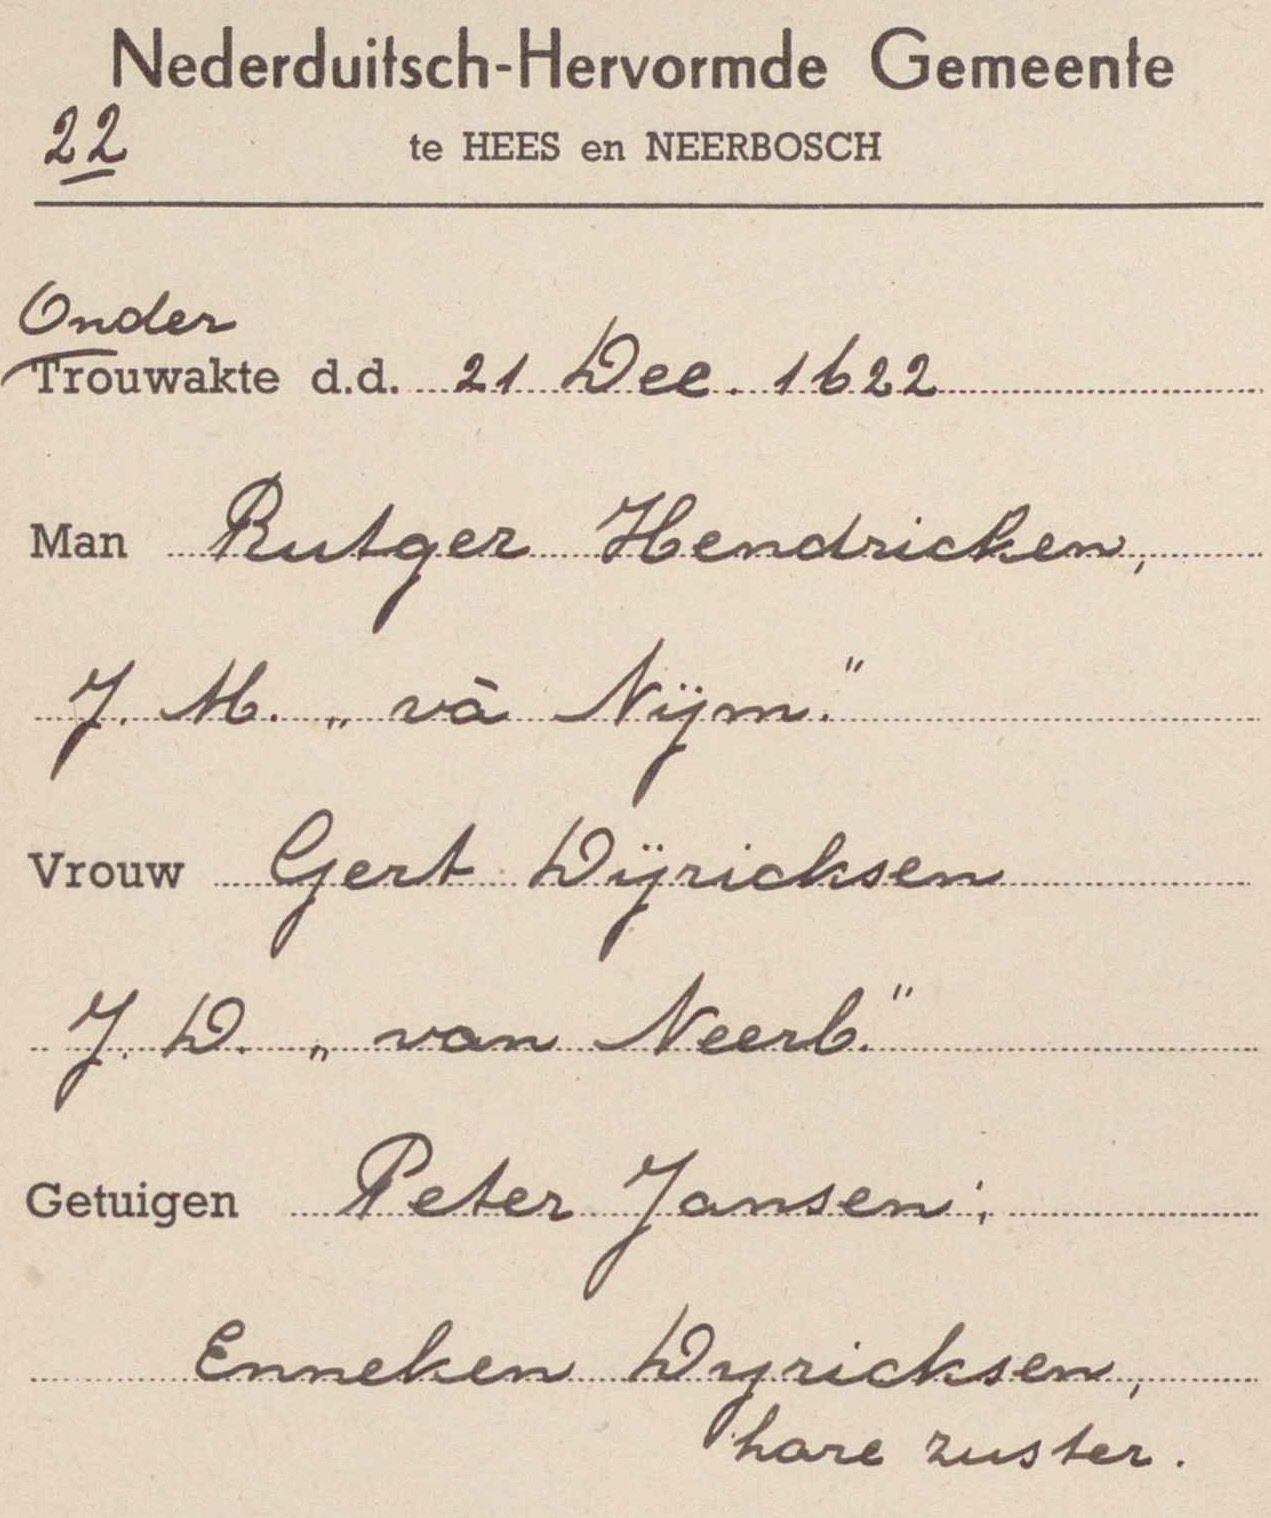 Nederduitsch-Hervormde Gemeente
22 te HEES en NEERBOSCH
Onder
Trouwakte d.d. 21 Dec. 1622
Man Rutger Hendricken,
J. M. „ vā Nijm."
Vrouw Gert Dÿricksen
J. D. „ van Neerb."
Getuigen Peter Jansen;
Enneken Dyricksen,
hare zuster.